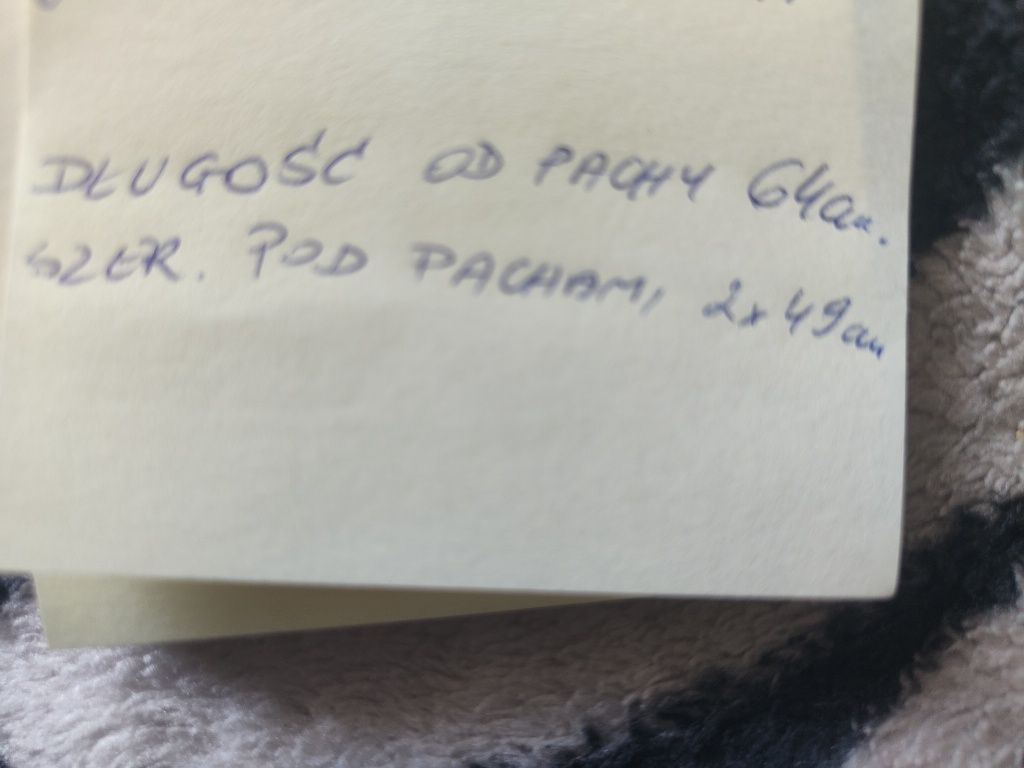 DŁUGOŚĆ OD PACHY 64cm.
SZER. POD PACHAMI 2x49cm